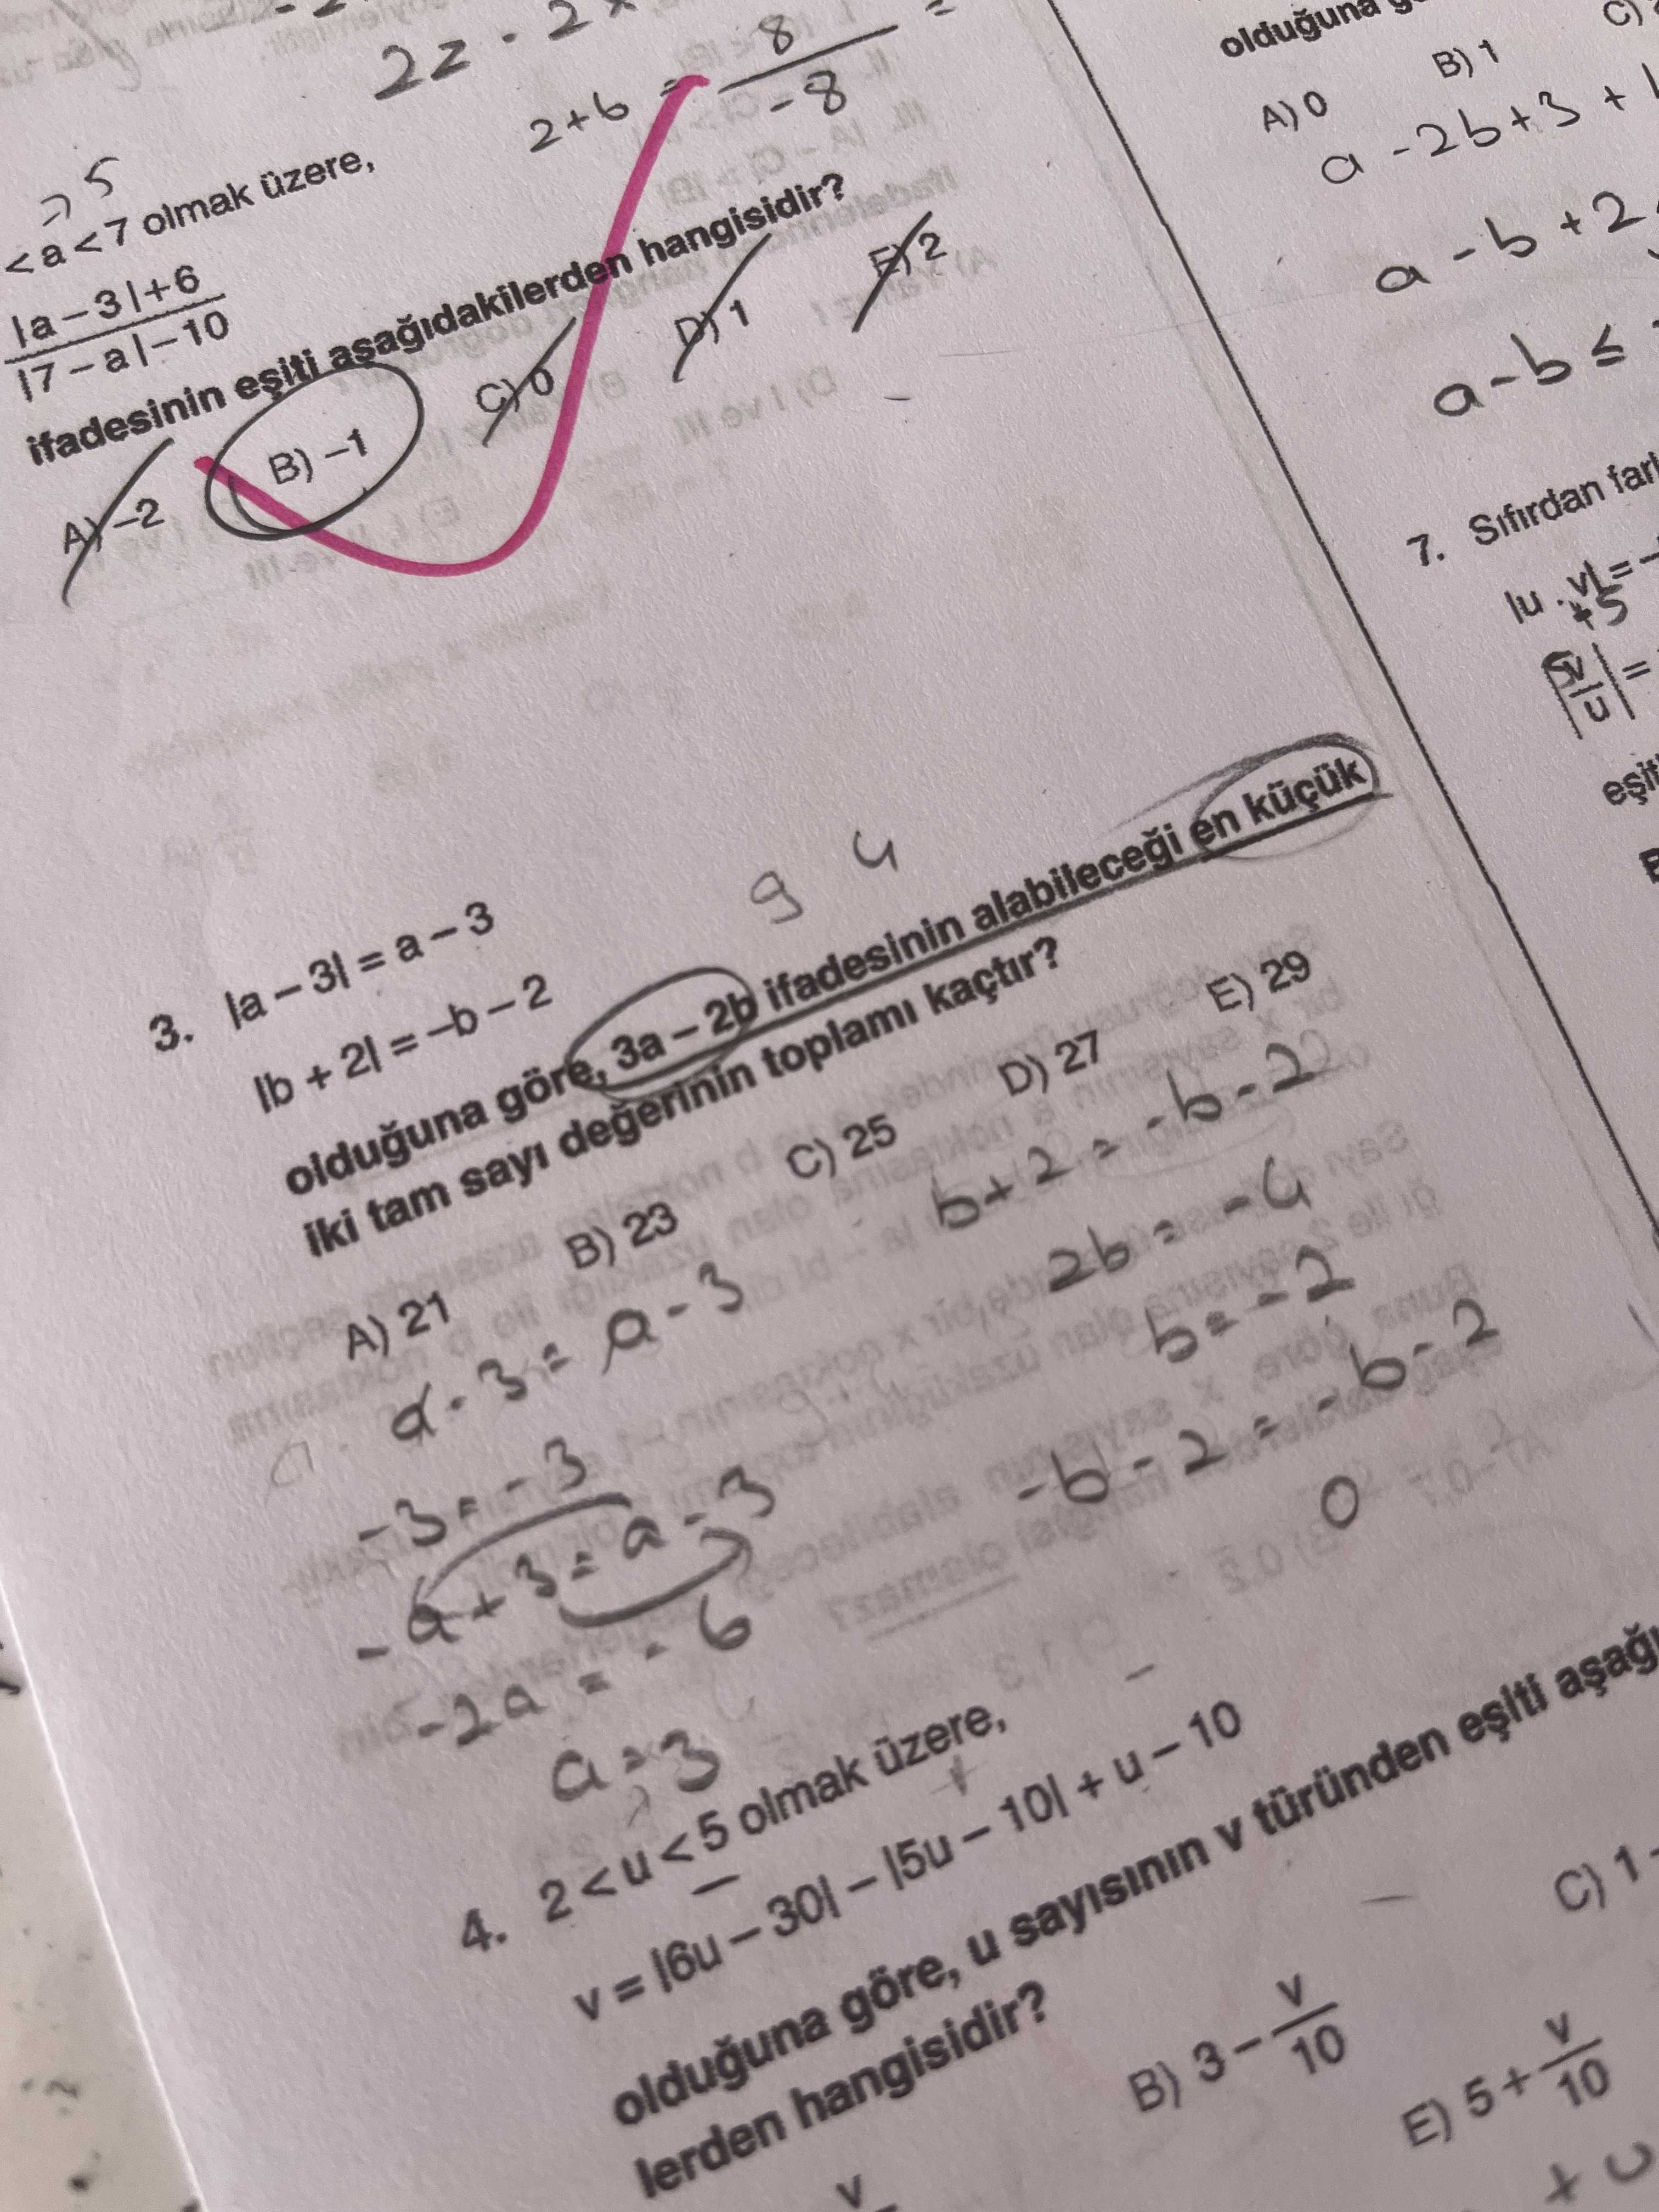 2z . 2
2+6 = 8/-8 =
5
< a < 7 olmak üzere,
|a – 3|+6
|7 – a|–10
ifadesinin eşiti aşağıdakilerden hangisidir?
A) –2 B) –1 C) 0 D) 1 E) 2
9 4
3. |a – 3| = a – 3
|b + 2| = –b – 2
olduğuna göre, 3a – 2b ifadesinin alabileceği en küçük
iki tam sayı değerinin toplamı kaçtır?
A) 21 B) 23 C) 25 D) 27 E) 29
a - 3 = a - 3
-3 = -3
-a + 3 = a - 3
-2a = -6
a = 3
b + 2 = -b - 2
2b = -4
b = -2
-b - 2 = -b - 2
0
4. 2 < u < 5 olmak üzere,
v = |6u – 30| – |5u – 10| + u – 10
olduğuna göre, u sayısının v türünden eşiti
lerden hangisidir?
B) 3 – v/10
C) 1
E) 5 + v/10
+ u
olduğuna
A) 0 B) 1 C)
a - 2b + 3 +
a - b + 2
a - b ≤
7. Sıfırdan
|u . v| =
+5
|5v/u| =